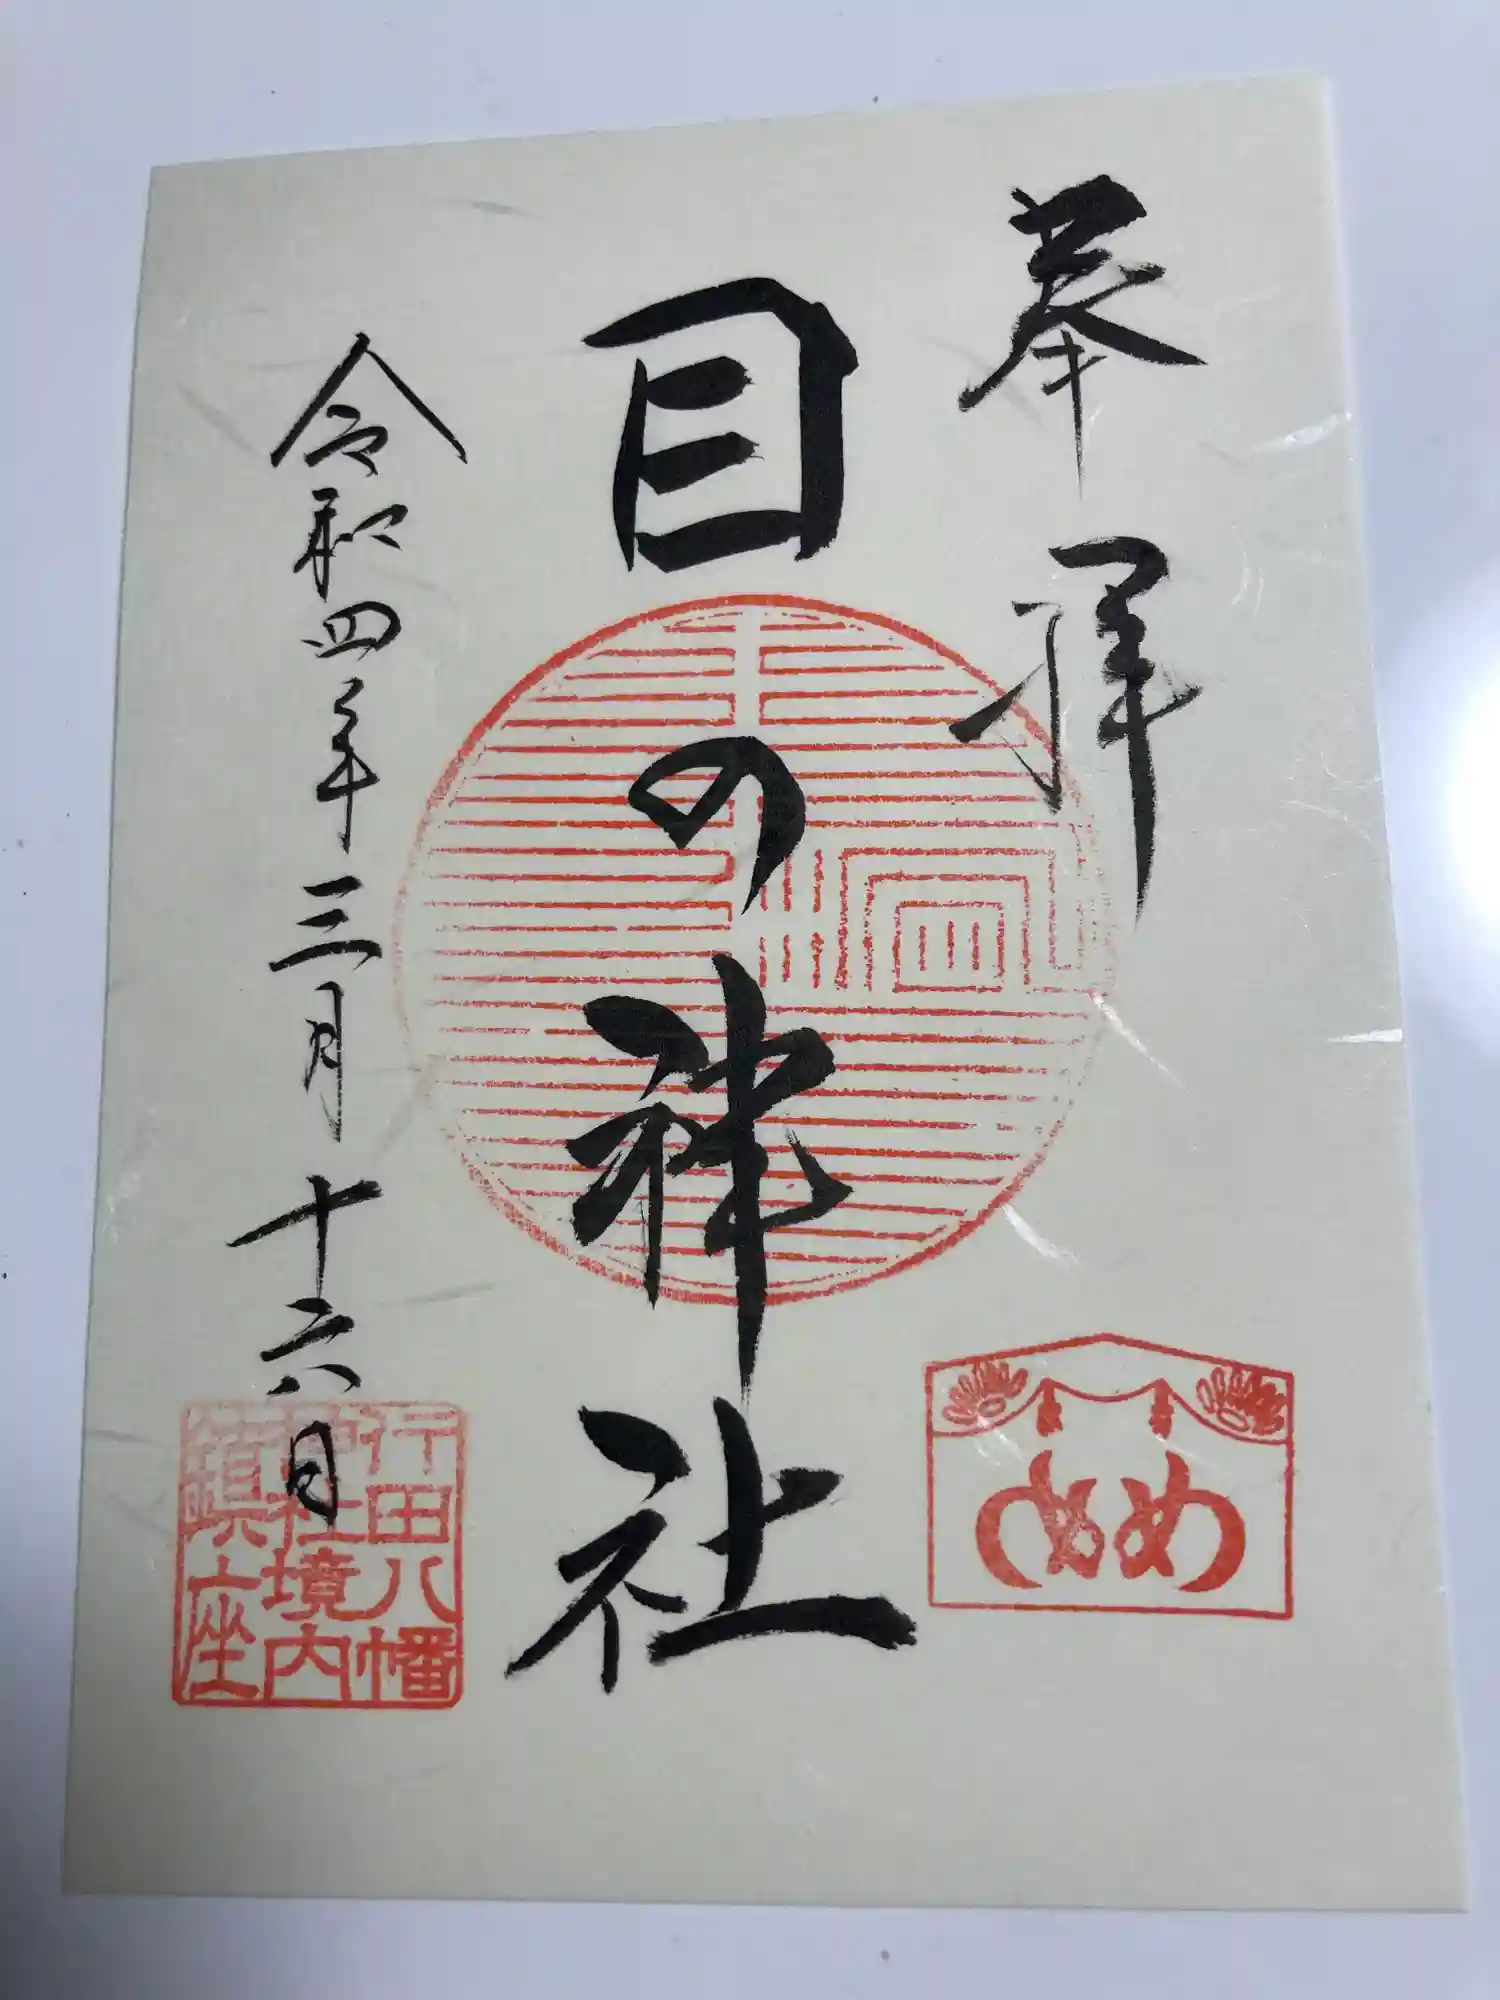 奉拝
目の神社
め め
令和四年三月十六日
行田八幡
神社境内
鎮座